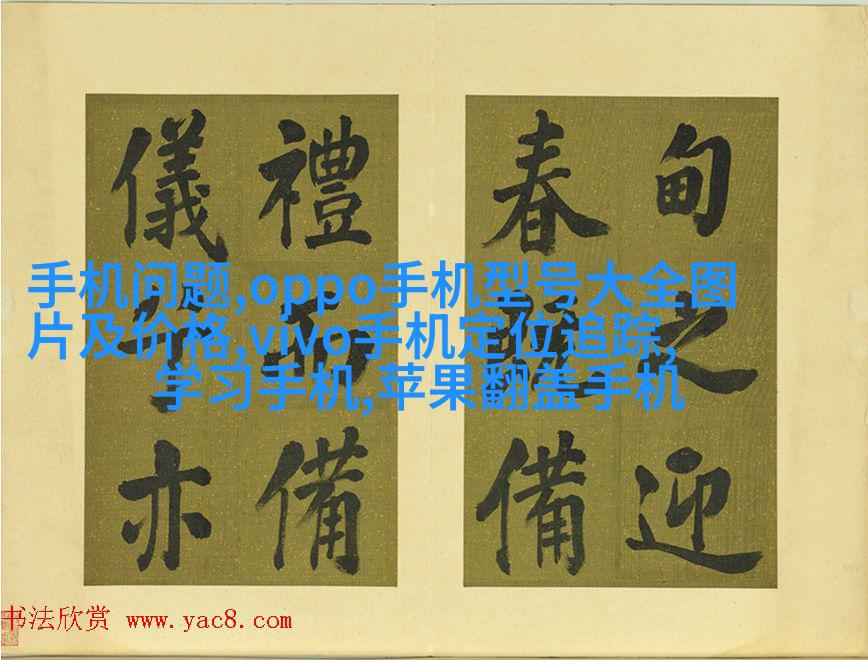 甸之迎
春備
禮備
儀亦
手机问题,oppo手机型号大全图
片及价格,vivo手机定位追踪,
学习手机,苹果翻盖手机
书法欣赏 www.yac8.com